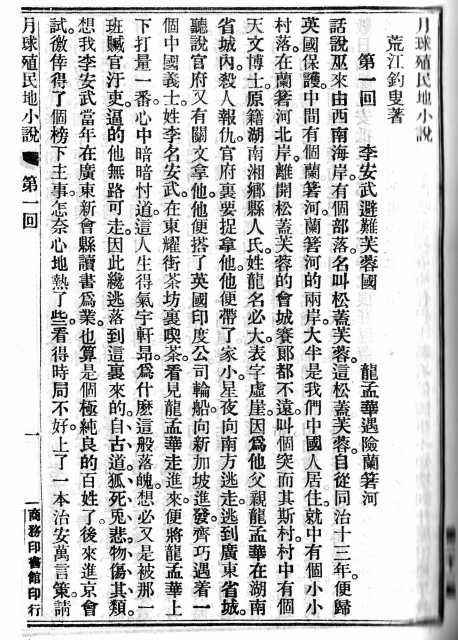 月球殖民地小說
荒江釣叟著
第一回　李安武避難芙蓉國　龍孟華遇險蘭箬河
話說巫來由西南海岸。有個部落名叫松蓋芙蓉。這松蓋芙蓉。自從同治十三年。便歸
英國保護。中間有個蘭箬河。蘭箬河的兩岸。大半是我們中國人居住。就中有個小小
村落。在蘭箬河北岸。離開松蓋芙蓉的會城賽郎都不遠。叫個突而其斯村。村中有個
天文博士。原籍湖南湘鄉縣人氏。姓龍名必大。表字虛崖。因為他父親龍孟華在湖南
省城內。殺人報仇。官府裏要捉拿他。他便帶了家小。星夜向南方逃走。逃到廣東省城。
聽說官府又有關文拿他。他便搭了英國印度公司輪船。向新加坡進發。齊巧遇着一
個中國義士。姓李名安武。在東耀街茶坊裏喫茶。看見龍孟華走進來。便將龍孟華上
下打量一番。心中暗暗忖道。這人生得氣宇軒昂。爲什麽這般落魄。想必又是被那一
班贓官汙吏。逼的他無路可走。因此纔逃落到這裏來的。自古道。狐死兎悲。物傷其類。
想我李安武當年在廣東新會縣讀書爲業。也算是個極純良的百姓了。後來進京會
試。徼倖得了個榜下主事。怎奈心地熱了些。看得時局不好。上了一本治安萬言策。請
月球殖民地小說　第一回　一　商務印書館印行